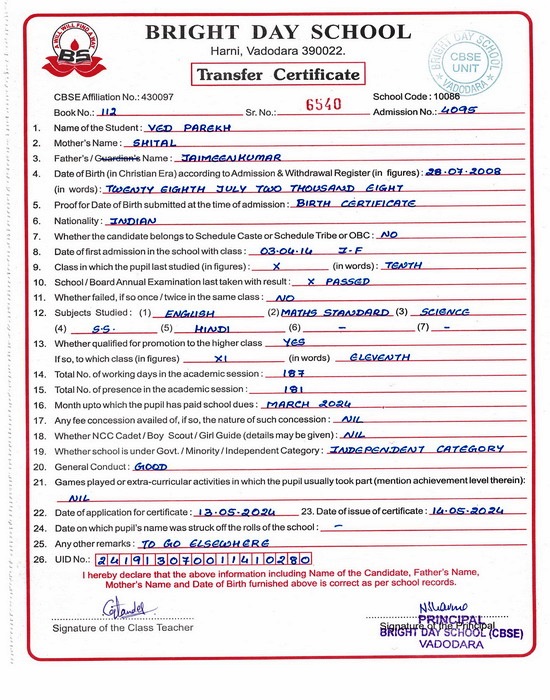 A WILL WILL FIND A WAY
BS
BRIGHT DAY SCHOOL
Harni, Vadodara 390022.
Transfer Certificate
BRIGHT DAY SCHOOL
CBSE
UNIT
VADODARA
CBSE Affiliation No.: 430097 School Code : 10086
Book No.: 112 Sr. No.: 6540 Admission No.: 4095
1. Name of the Student : VED PAREKH
2. Mother's Name : SHITAL
3. Father's / Guardian's Name : JAIMEENKUMAR
4. Date of Birth (in Christian Era) according to Admission & Withdrawal Register (in figures) : 28-07-2008
(in words) : TWENTY EIGHTH JULY TWO THOUSAND EIGHT
5. Proof for Date of Birth submitted at the time of admission : BIRTH CERTIFICATE
6. Nationality : INDIAN
7. Whether the candidate belongs to Schedule Caste or Schedule Tribe or OBC : NO
8. Date of first admission in the school with class : 03-04-14 I-F
9. Class in which the pupil last studied (in figures) : X (in words) : TENTH
10. School / Board Annual Examination last taken with result : X PASSED
11. Whether failed, if so once / twice in the same class : NO
12. Subjects Studied : (1) ENGLISH (2) MATHS STANDARD (3) SCIENCE
(4) S.S. (5) HINDI (6) – (7) –
13. Whether qualified for promotion to the higher class YES
If so, to which class (in figures) XI (in words) ELEVENTH
14. Total No. of working days in the academic session : 187
15. Total No. of presence in the academic session : 181
16. Month upto which the pupil has paid school dues : MARCH 2024
17. Any fee concession availed of, if so, the nature of such concession : NIL
18. Whether NCC Cadet / Boy Scout / Girl Guide (details may be given) : NIL
19. Whether school is under Govt. / Minority / Independent Category : INDEPENDENT CATEGORY
20. General Conduct : GOOD
21. Games played or extra-curricular activities in which the pupil usually took part (mention achievement level therein):
NIL
22. Date of application for certificate : 13-05-2024 23. Date of issue of certificate : 14-05-2024
24. Date on which pupil's name was struck off the rolls of the school : –
25. Any other remarks : TO GO ELSEWHERE
26. UID No.: 241913070011410280
I hereby declare that the above information including Name of the Candidate, Father's Name,
Mother's Name and Date of Birth furnished above is correct as per school records.
Signature of the Class Teacher
Signature of the Principal
PRINCIPAL
BRIGHT DAY SCHOOL (CBSE)
VADODARA